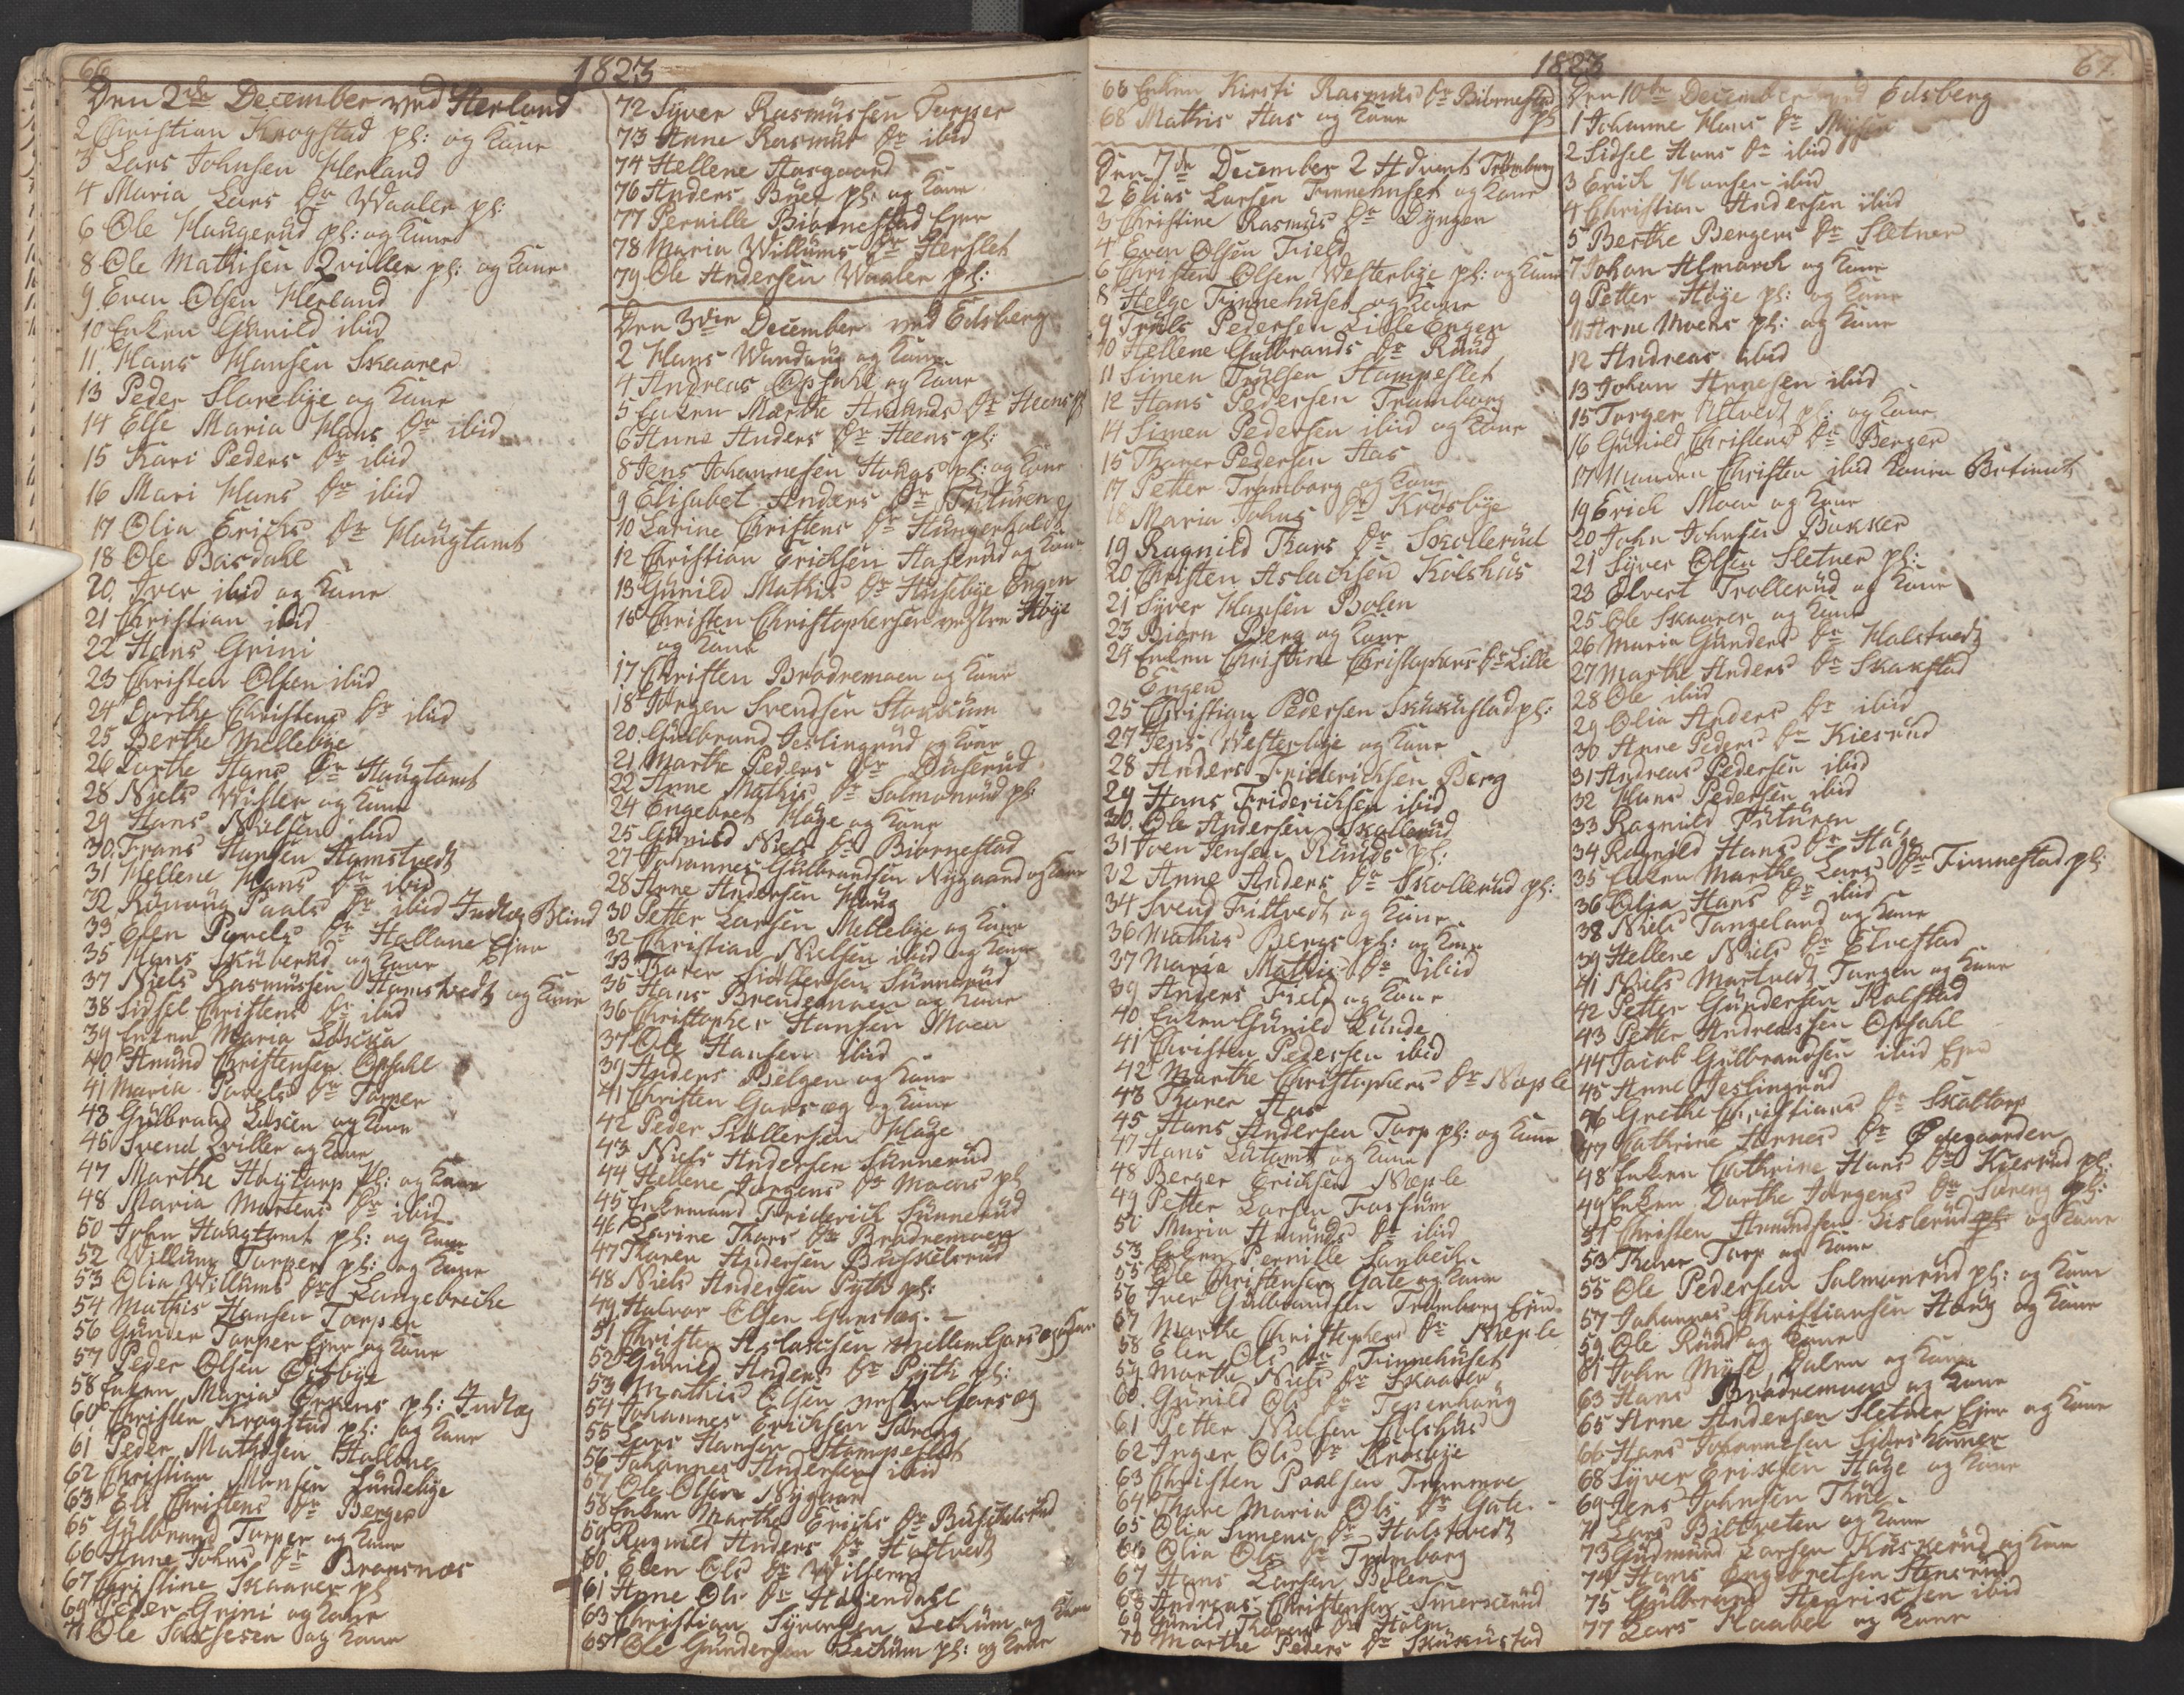 66
1823
Den 2den December ved Herland
2 Christian Krogstad pl: og Kone
3 Lars Johnsen Herland
4 Maria Lars Dr Waaler pl:
6 Ole Haugerud pl: og Kone
8 Ole Mathisen Qviller pl: og Kone
9 Even Olsen Herland
10 Enken Gunild ibid
11 Hans Hansen Skaarer
13 Peder Slorebye og Kone
14 Else Maria Hans Dr ibid
15 Kari Peders Dr ibid
16 Mari Hans Dr ibid
17 Olia Erichs Dr Haugtomt
18 Ole Basdahl
20 Iver ibid og Kone
21 Christian ibid
22 Hans Grini
23 Christen Olsen ibid
24 Dorthe Christens Dr ibid
25 Berthe Mellebye
26 Dorthe Hans Dr Haugtomt
28 Niels Wisler og Kone
29 Hans Nielsen ibid
30 Frans Hansen Hamstvedt
31 Hellene Hans Dr ibid
32 Rønnaug Paals Dr ibid Indlæg Blind
33 Elen Povels Dr Hallone Ejer
35 Hans Skuberud og Kone
37 Niels Rasmussen Hamstvedt og Kone
38 Sidsel Christens Dr ibid
39 Enken Maria
40 Amund Christensen Opsahl
41 Maria Povels Dr Torper
43 Gulbrand og Kone
46 Svend Qviller og Kone
47 Marthe Høytorp pl: og Kone
48 Maria Mortens Dr ibid
50 John Haugtomt pl: og Kone
52 Willum Torper pl: og Kone
53 Olia Willums Dr Langebreche
54 Mathis Hansen Torper
56 Gunder Torper Ejer og Kone
57 Peder Olsen Østbye
58 Enken Maria pl: Indlæg
60 Christen Krogstad pl: og Kone
61 Peder Mathisen Hallone
62 Christian Monsen Lundebye
63 Eli Christens Dr Berger
65 Gulbrand Torper og Kone
66 Anne Johns Dr Bransnæs
67 Christine Skaarer pl
69 Peder Grini og Kone
71 Ole og Kone
72 Syver Rasmussen Torper
73 Anne Rasmus Dr ibid
74 Hellene Hasgaard
76 Anders Buer pl: og Kone
77 Pernille Biørnestad Ejer
78 Maria Willums Dr Herslet
79 Ole Andersen Waaler pl:
Den 3die December ved Edsberg
2 Hans Wandaug og Kone
4 Andreas Opsahl og Kone
5 Enken Marthe Amunds Dr Heens pl
6 Anne Anders Dr Heens pl:
8 Jens Johannesen Hokaas pl: og Kone
9 Elisabet Anders Dr Tuturen
10 Larine Christens Dr Hungerholdt
12 Christian Erichsen Haserud og Kone
13 Gunild Mathis Dr Husebye Engen
16 Christen Christophersen vestre Høye
og Kone
17 Christen Brødremoen og Kone
18 Jørgen Svendsen Stokkum
20 Gulbrand Jeslingrud og Kone
21 Marthe Peders Dr Buserud
22 Anne Mathis Dr Salmonrud pl:
24 Engebret Hage og Kone
25 Gunild Niels Dr Biørnestad
27 Johannes Gulbrandsen Nygaard og Kone
28 Anne Andersen Haug
30 Petter Larsen Mellebye og Kone
32 Christian Nielsen ibid og Kone
33 Thorer Siøllersen Sunnerud
35 Hans Brendemoen og Kone
36 Christopher Hansen Moen
37 Ole Hansen ibid
39 Anders Bølgen og Kone
41 Christen Garsæg og Kone
42 Peder Siøllersen Hage
43 Niels Andersen Sunnerud
44 Hellene Jørgens Dr Moens pl
45 Enkemand Friderich Sunnerud
46 Larine Thors Dr Brødremoen
47 Thoren Andersen Buskelsrud
48 Niels Andersen Pyth pl:
49 Halvor Olsen Garsæg
51 Christen Aslachsen mellem Garsæg og Kone
52 Gunild Anders Dr Pyth pl:
53 Mathis Olsen vestre Garsæg
54 Johannes Erichsen Søreng
55 Lars Hansen Stompeslet
56 Johannes Andersen ibid
57 Ole Olsen Nygaard
58 Enken Marthe Erichs Dr Buskelsrud
59 Ragnild Anders Dr Haltvedt
60 Elen Ols Dr
61 Anne Ols Dr Hagendahl
63 Christian Syversen Lechum og Kone
65 Ole Gundersen Lechum pl: og Kone
1823
67
66 Enken Kirsti Rasmus Dr Biørnestad
68 Mathis Aas og Kone pl
Den 7de December 2 Advent Trømborg
2 Elias Larsen Finnehuset og Kone
3 Christine Rasmus Dr Dyngen
4 Even Olsen Field
6 Christen Olsen Westerbye pl: og Kone
8 Helge Finnehuset og Kone
9 Truls Pedersen Lille Engen
10 Hellene Gulbrands Dr Ruud
11 Simen Trulsen Stompeslet
12 Hans Pedersen Trømborg
14 Simen Pedersen ibid og Kone
15 Thorer Pedersen Aas
17 Petter Trømborg og Kone
18 Maria Johns Dr Krosbye
19 Ragnild Thors Dr Skollerud
20 Christen Aslachsen Kolshus
21 Syver Hansen Bolen
23 Biørn Berg og Kone
24 Enken Christine Christophers Dr Lille
Engen
25 Christian Pedersen Skukustad pl:
27 Jens Westerbye og Kone
28 Anders Friderichsen Berg
29 Hans Friderichsen ibid
30 Ole Andersen Skollerud
31 Joen Jensen Ruuds pl:
32 Anne Anders Dr Skollerud pl:
34 Svend Fittvedt og Kone
36 Mathis Bergs pl: og Kone
37 Maria Mathis Dr ibid
39 Anders Field og Kone
40 Enken Gunild Lunde
41 Christen Pedersen ibid
42 Marthe Christophers Dr Næple
43 Thorer Aas
45 Hans Andersen Torp pl: og Kone
47 Hans Lutomt og Kone
48 Berger Erichsen Næple
49 Petter Larsen Fossum
50 Maria Amunds Dr ibid
53 Enken Pernille
55 Ole Christensen Gate og Kone
56 Iver Gulbrandsen Trømborg Ejer
57 Marthe Christophers Dr Næple
58 Elen Ols Dr Finnehuset
59 Marthe Niels Dr Skaarer
60 Gunild Ols Dr Tepenhaug
61 Petter Nielsen Kolshus
62 Inger Ols Dr Krosbye
63 Christen Poulsen
64 Thore Maria Ols Dr Gate
65 Olia Simens Dr Halstvedt
66 Olia Ols Dr Trømborg
67 Hans Larsen Bolen
68 Andreas Christensen
69 Gunild Thorers Dr Holm
70 Marthe Peders Dr Skukustad
Den 10de December ved Edsberg
1 Johanne Hans Dr Mysen
2 Sidsel Hans Dr ibid
3 Erich Hansen ibid
4 Christian Andersen ibid
5 Berthe Bergers Dr Sletner
7 Johan Almarch og Kone
9 Petter Høye pl: og Kone
11 Arne Moens pl: og Kone
12 Andreas ibid
13 Johan Arnesen ibid
15 Torger Utvedt pl: og Kone
16 Gunild Christens Dr Berger
17 Manden Christen ibid Konen Betient
19 Erich Moen og Kone
20 John Johnsen Bakker
21 Syver Olsen Sletner pl:
23 Elvert Trollerud og Kone
25 Ole Skaarer og Kone
26 Maria Gunders Dr Halstvedt
27 Marthe Anders Dr Skakstad
28 Ole ibid
29 Olia Anders Dr ibid
30 Anne Peders Dr Kiesrud
31 Andreas Pedersen ibid
32 Hans Pedersen ibid
33 Ragnild Tuturen
34 Ragnild Hans Dr Hage
35 Enken Marthe Lars Dr Finnestad pl:
36 Olia Hans Dr ibid
38 Niels Tangeland og Kone
39 Hellene Niels Dr Elvestad
41 Niels Martvedt Tangen og Kone
42 Petter Gundersen Kolstad
43 Petter Andreassen Opsahl
44 Jacob Gulbrandsen ibid Ejer
45 Anne Jeslingrud
46 Grethe Christians Dr Skaltorp
47 Cathrine Arnes Dr Ødegaarden
48 Enken Cathrine Hans Dr Kiesrud pl:
49 Enken Dorthe Jørgens Dr Søreng pl:
51 Christen Amundsen Gislerud pl: og Kone
53 Thorer Torp og Kone
55 Ole Pedersen Salmonrud pl: og Kone
57 Johannes Christiansen Haug og Kone
59 Ole Ruud og Kone
61 John Myhr, Dalen og Kone
63 Hans Brødremoen og Kone
65 Arne Andersen Sletner Ejer og Kone
66 Hans Johannesen
68 Syver Erichsen Hage og Kone
69 Jens Johnsen
71 Lars Bilteteten og Kone
73 Gudmund Larsen Kuskerud og Kone
74 Hans Engebretsen Stensrud
75 Gulbrand Henrichsen ibid
77 Lars Kaabel og Kone